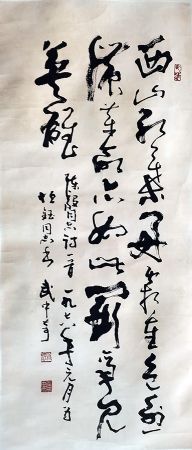 西山红叶好霜重色愈
浓革命亦如此斗争见
英雄
陈毅同志诗一首一九七八年元月为
同志 武中奇